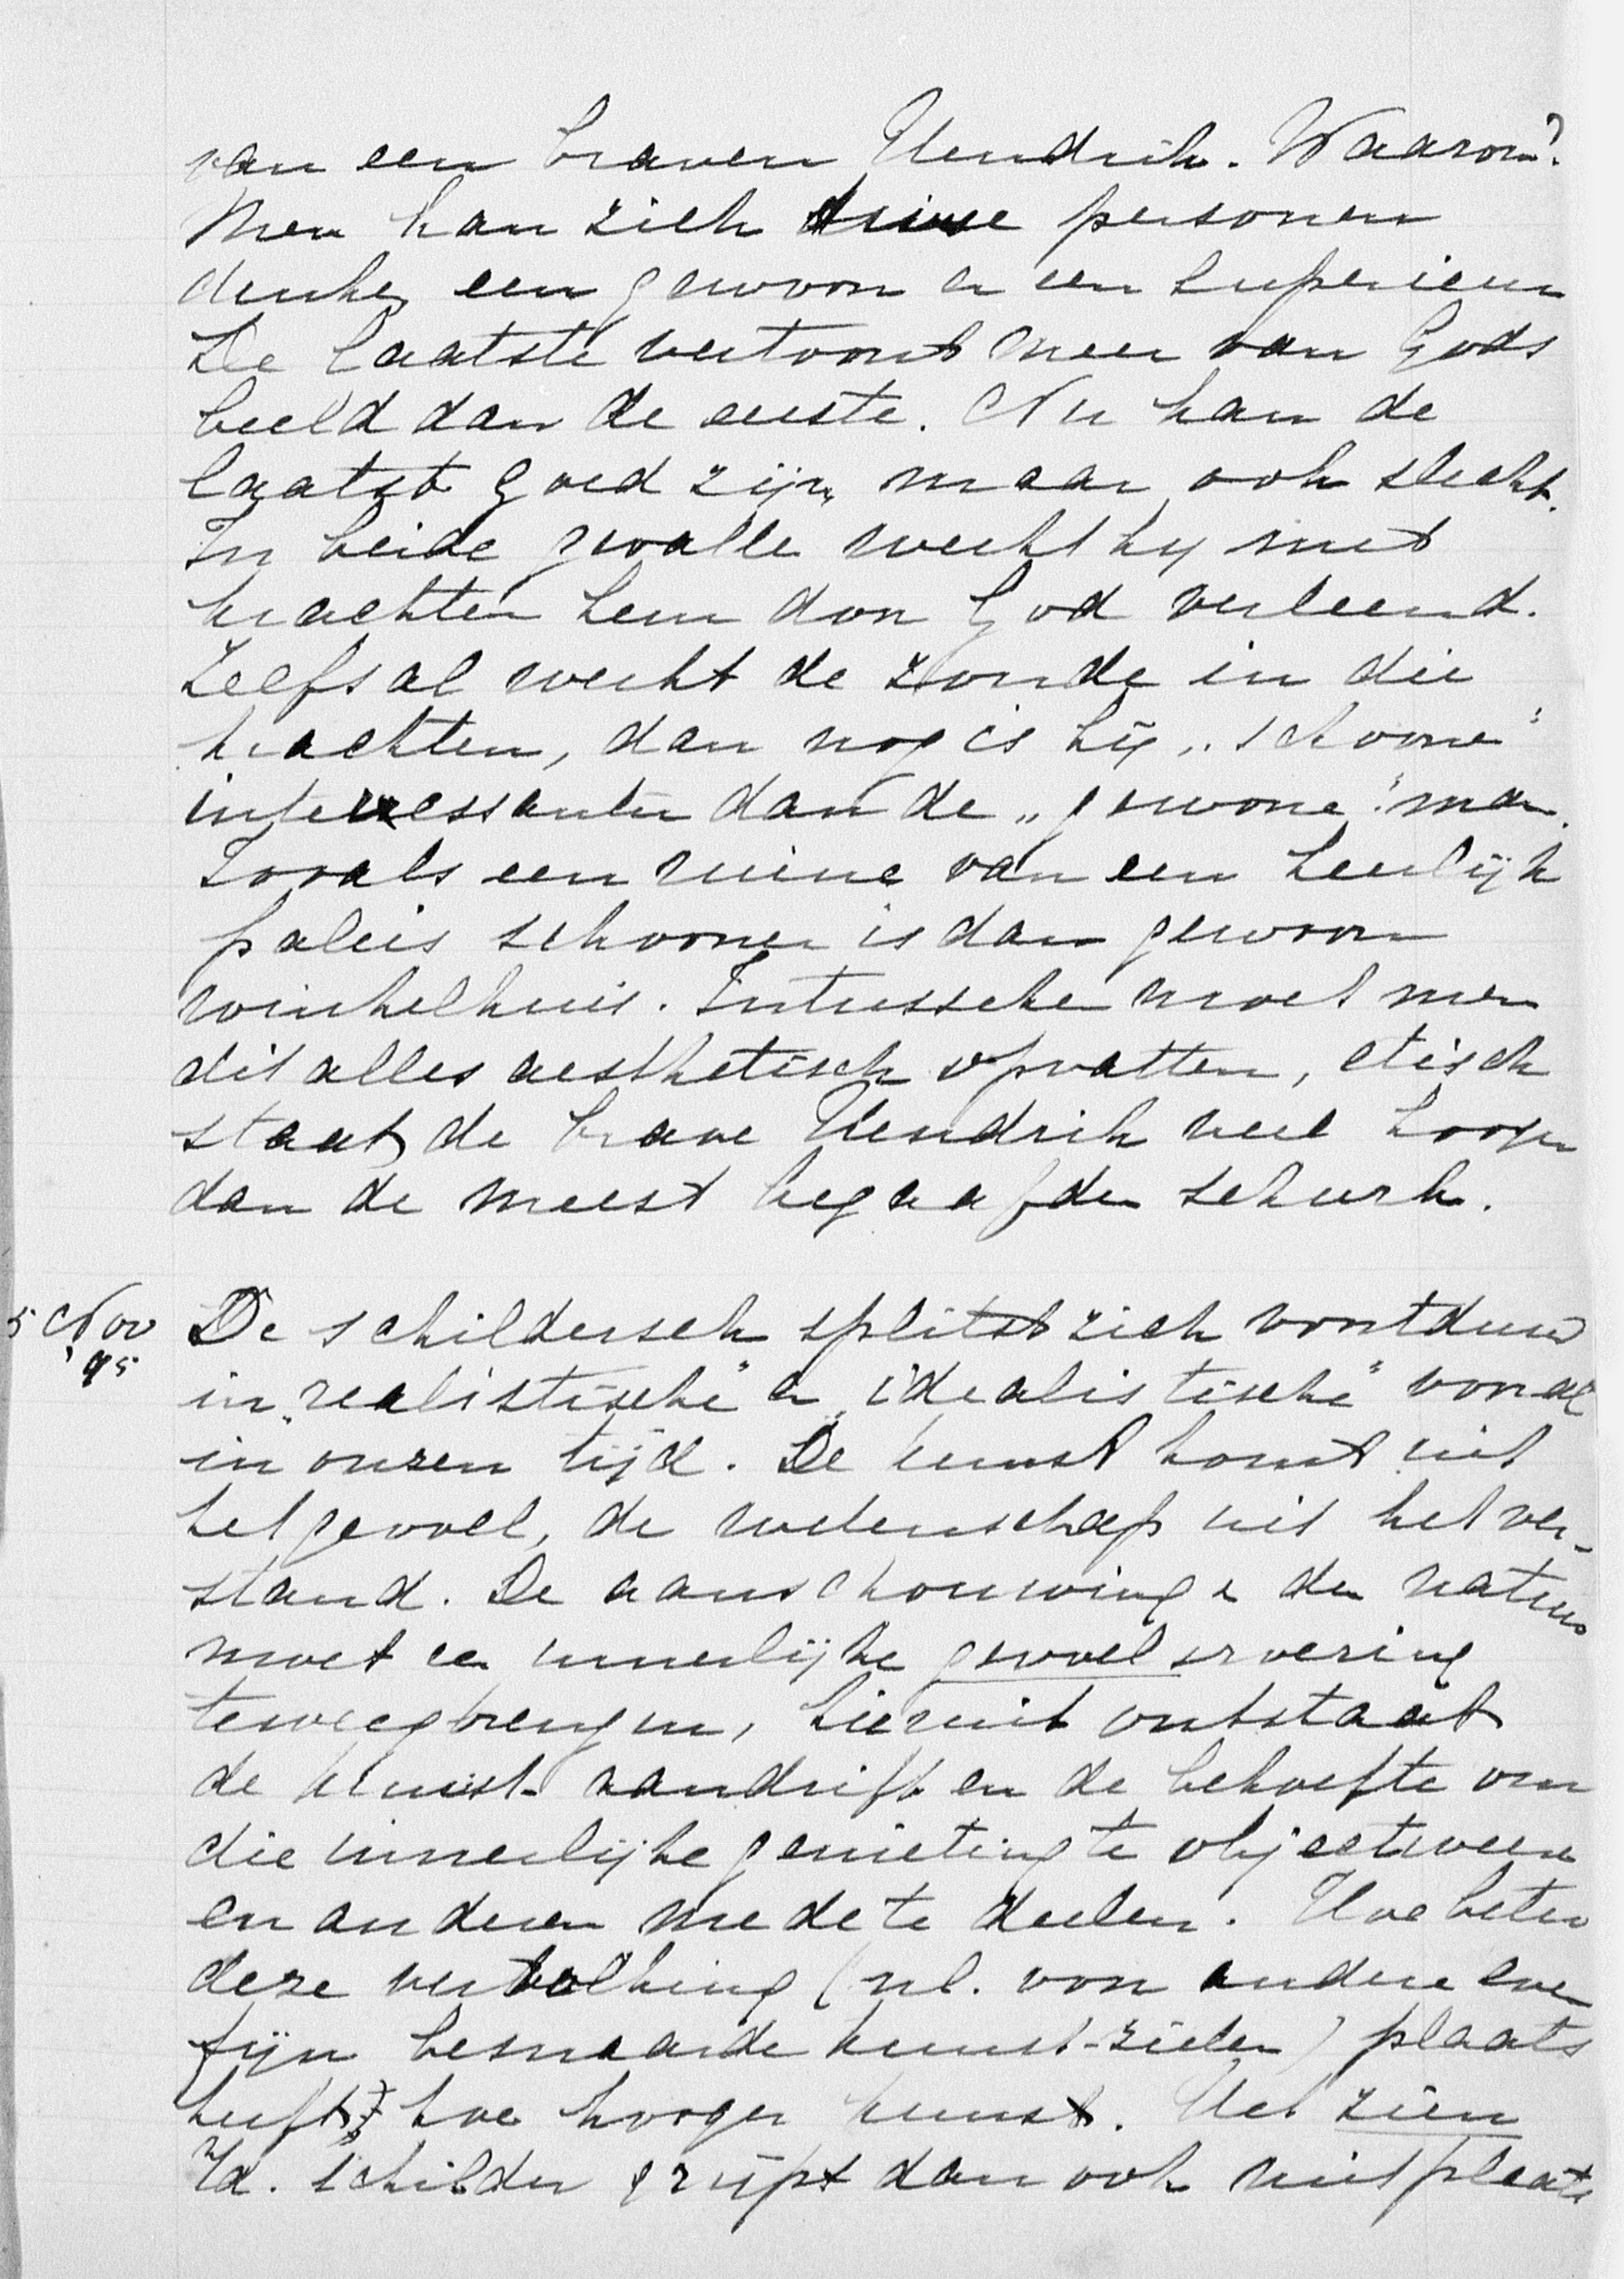 van een braven Hendrik. Waarom?
Men kan zich personen
denken een gewoon en een superieur
De laatste vertoont meer van Gods
beeld dan de eerste. Nu kan de
laatst goed zijn, maar ook slecht.
In beide gevalle werkt hy met
krachten hem don God verleend.
Zelfs al werkt de zonde in die
krachten, dan nog is hij „schoone"
interessanter dan de „gewone" man.
Zooals een ruine van een heerlijk
paleis schooner is dan gewoon
winkelhuis. Intusschen moet men
dit alles aesthetisch opvatten, etisch
staat de brave Hendrik veel hooger
dan de meest begaafden schurk.
5 Nov '95
De schildersch splitst zich voortdurend
in „realistische" en „idealistische" vooral
in onzen tijd. De kunst komt uit
het gevoel, de wetenschap uit het ver-
stand. De aanschouwing der natuur
moet een innerlijke gevoelservaring
teweegbrengen, hieruit ontstaat
de kunst-aandrift en de behoefte om
die innerlijke genieting te objectiveeren
en anderen mede te deelen. Hoe beter
deze vertolking (nl. voor andere even
fijn besnaarde kunst-zielen) plaats
heeft, hoe hooger kunst. Het zien
v/d. schilder grijpt dan ook niet plaats